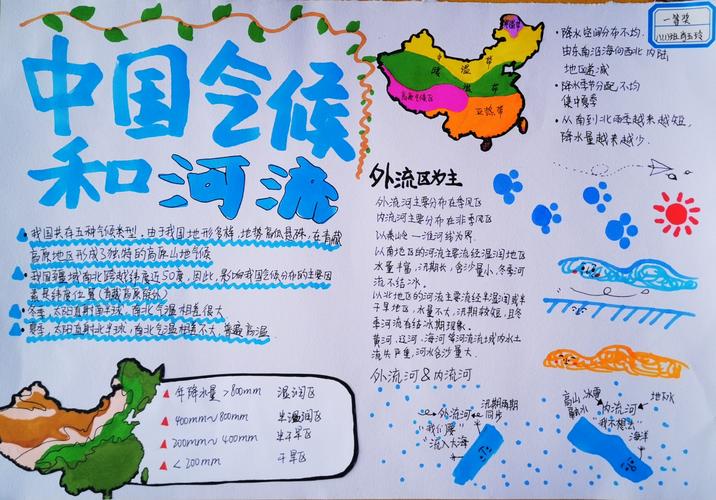 中国气候
和河流
我国共存五种气候类型,由于我国地形多样,地势高低悬殊,在青藏
高原地区形成了独特的高原山地气候
我国疆域南北跨越纬度近50度,因此,影响我国气候分布的主要因
素是纬度位置(青藏高原除外)
冬季,太阳直射南半球,南北气温相差很大
夏季,太阳直射北半球,南北气温相差不大,普遍高温
年降水量>800mm 湿润区
400mm~800mm 半湿润区
200mm~400mm 半干旱区
<200mm 干旱区
寒温带
暖温带
高原气候区
亚热带
一等奖
降水空间分布不均.
由东南沿海向西北内陆
地区递减
降水季节分配不均
集中夏季
从南到北雨季越来越短,
降水量越来越少.
外流区为主
外流河主要分布在季风区
内流河主要分布在非季风区
以秦岭—淮河线为界
以南地区的河流主要流经湿润地区
水量丰富,汛期长,含沙量小,冬季河
流不结冰.
以北地区的河流主要流经半湿润或半
干旱地区,水量不大,汛期较短,且冬
季河流有结冰期现象.
黄河,辽河,海河等河流流域内水土
流失严重,河水含沙量大.
外流河&内流河
外流河
汛期雨期
同步
"我们要"
"流入大海"
高山冰雪
融水
地下水
内流河
"我不想去"
海洋